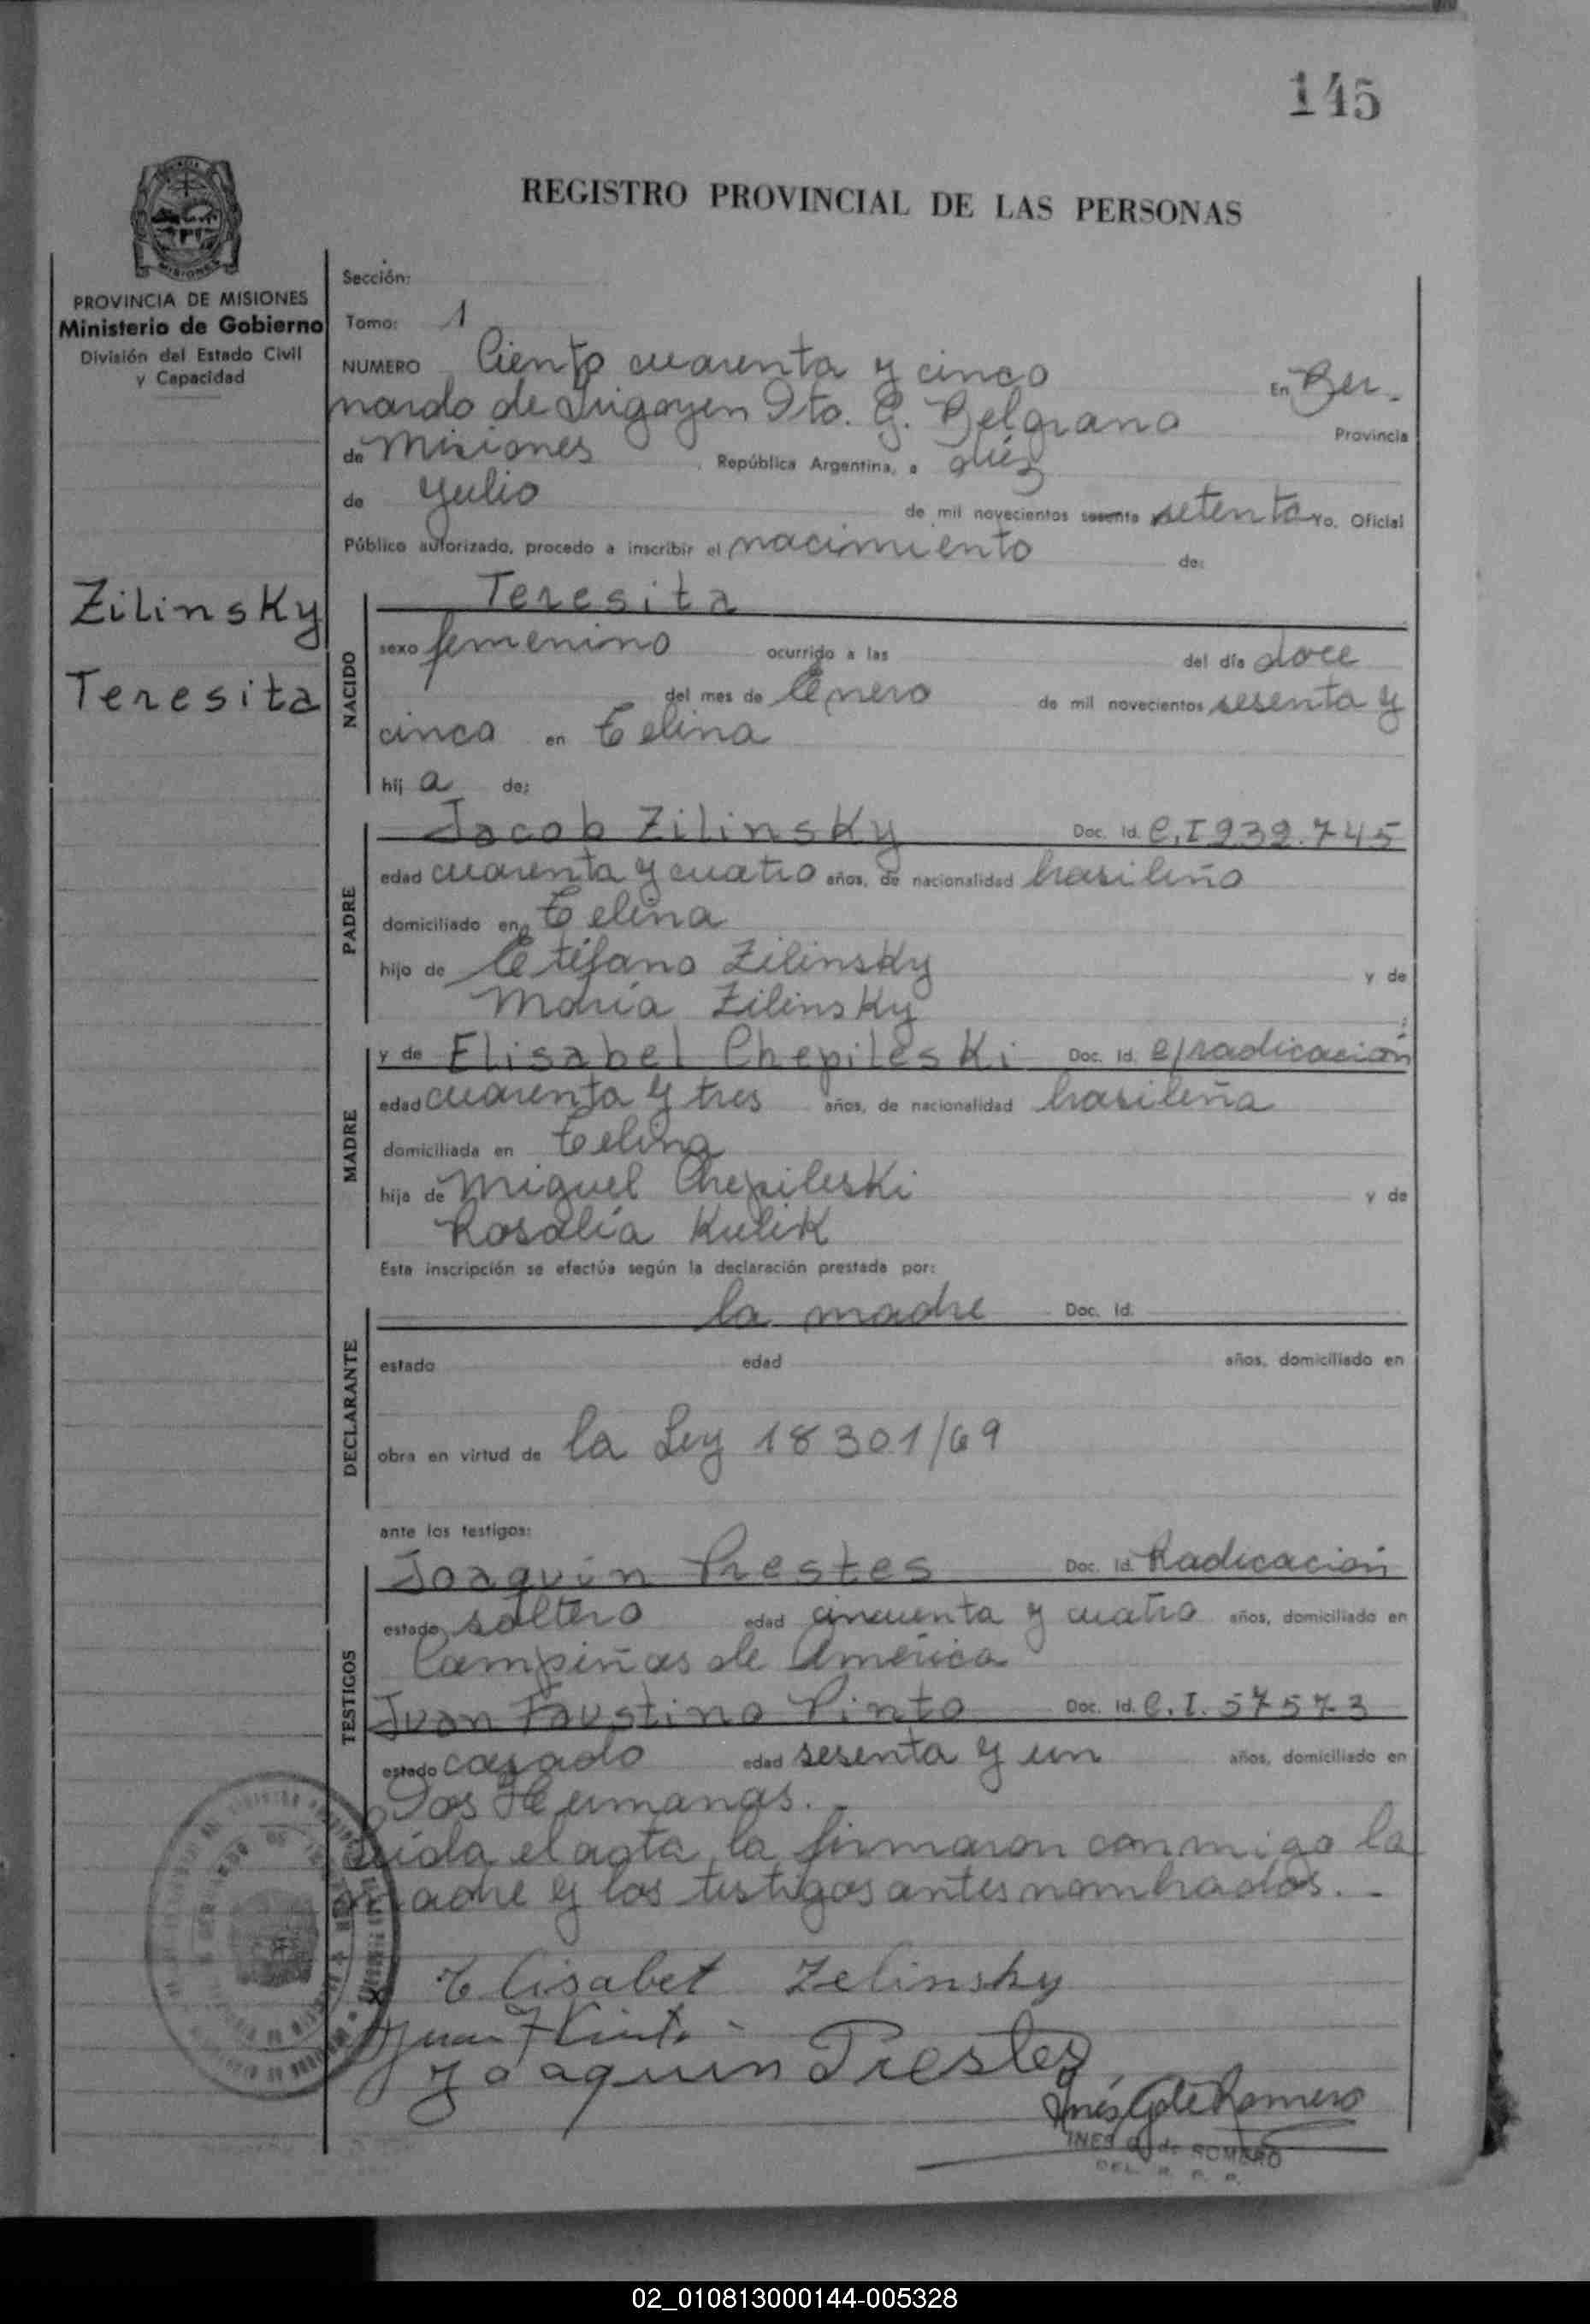 145
REGISTRO PROVINCIAL DE LAS PERSONAS
MISIONES
PROVINCIA DE MISIONES
Ministerio de Gobierno
División del Estado Civil
y Capacidad
Sección:
Tomo: 1
NUMERO Ciento cuarenta y cinco En Ber-
nardo de Irigoyen Dto. G. Belgrano Provincia
de Misiones, República Argentina, a diéz
de Julio de mil novecientos sesenta setenta Yo, Oficial
Público autorizado, procedo a inscribir el nacimiento de:
Zilinsky
Teresita
NACIDO
Teresita
sexo femenino ocurrido a las del día doce
del mes de Enero de mil novecientos sesenta y
cinco en Celina
hij a de:
PADRE
Jacob Zilinsky Doc. Id. C.I 939.745
edad cuarenta y cuatro años, de nacionalidad brasileño
domiciliado en Celina
hijo de Etéfano Zilinsky y de
María Zilinsky
MADRE
y de Elisabel Chepileski Doc. Id. C/radicación
edad cuarenta y tres años, de nacionalidad brasileña
domiciliada en Celina
hija de Miguel Chepileski y de
Rosalía Kulik
Esta inscripción se efectúa según la declaración prestada por:
DECLARANTE
la madre Doc. Id.
estado edad años, domiciliado en
obra en virtud de la Ley 18301/69
ante los testigos:
TESTIGOS
Joaquín Prestes Doc. Id. Radicación
estado soltero edad cincuenta y cuatro años, domiciliado en
Campiñas de América
Juan Faustino Pinto Doc. Id. C.I. 57573
estado casado edad sesenta y un años, domiciliado en
Dos Hermanas.-
Leída el acta, la firmaron conmigo la
madre y los testigos antes nombrados.-
x Elisabet Zelinsky
Juan F Pinto
Joaquin Prestes
Inés G de Romero
INES G. de ROMERO
DEL. R. P. P.
02_010813000144-005328